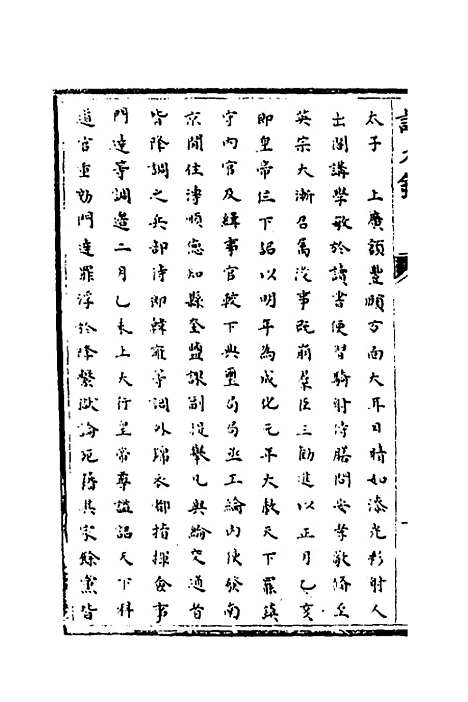 太子　上廣額豐頤方面大耳目睛如漆光彩射人
出閣講學敏於讀書便習騎射侍膳問安孝敬脩至
英宗大漸召屬後事既崩羣臣三勸進以正月乙亥
即皇帝位下詔以明年為成化元年大赦天下罷鎮
守內官及緝事官較下典璽局局丞王綸內使發南
京閒住溥順德知縣奎鹽課副提舉凡與綸交通者
皆降調之兵部侍郎韓雍等調外錦衣都指揮僉事
門達等調邊二月乙未上大行皇帝尊諡詔天下科
道官重劾門達罪浮於降繫獄論死籍其家餘黨皆